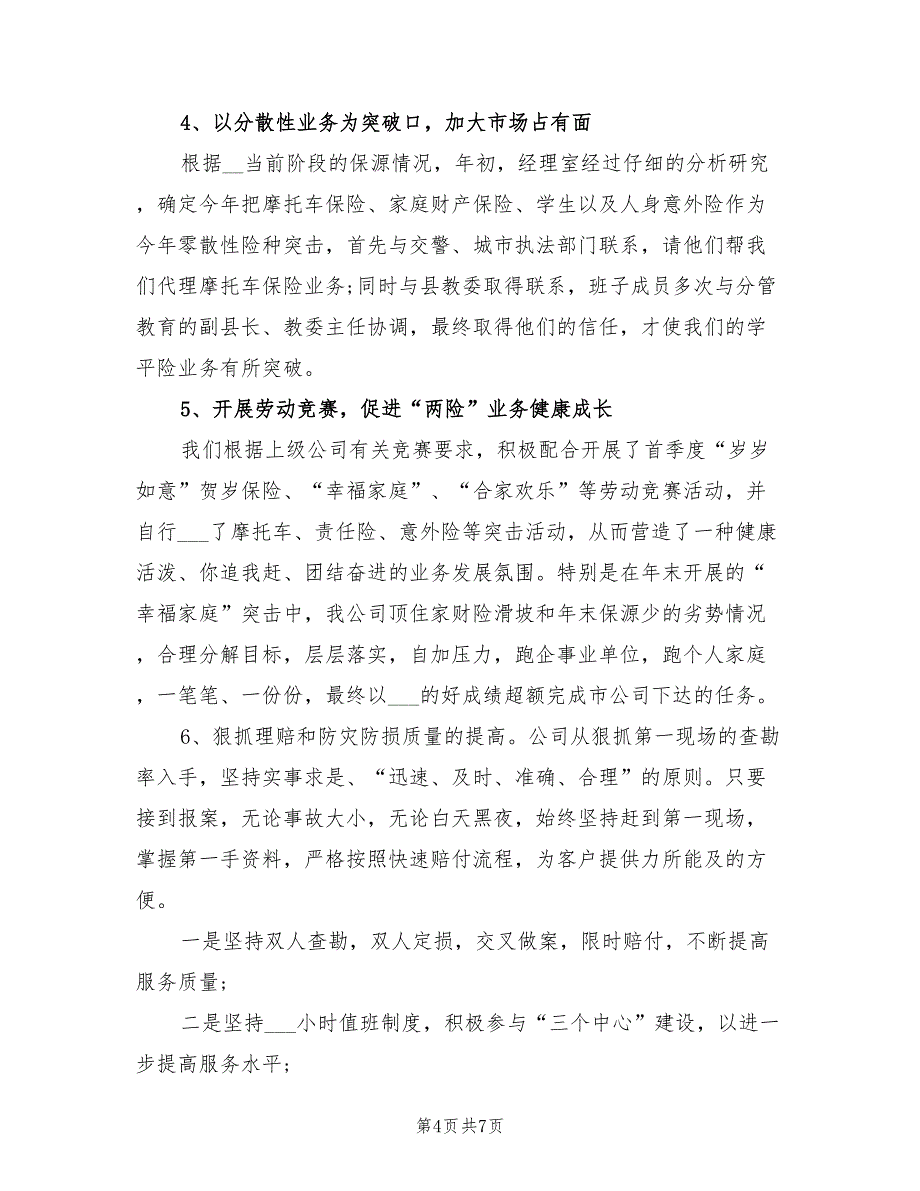 4、以分散性业务为突破口，加大市场占有面
根据__当前阶段的保源情况，年初，经理室经过仔细的分析研究
，确定今年把摩托车保险、家庭财产保险、学生以及人身意外险作为
今年零散性险种突击，首先与交警、城市执法部门联系，请他们帮我
们代理摩托车保险业务;同时与县教委取得联系，班子成员多次与分管
教育的副县长、教委主任协调，最终取得他们的信任，才使我们的学
平险业务有所突破。
5、开展劳动竞赛，促进“两险”业务健康成长
我们根据上级公司有关竞赛要求，积极配合开展了首季度“岁岁
如意”贺岁保险、“幸福家庭”、“合家欢乐”等劳动竞赛活动，并
自行___了摩托车、责任险、意外险等突击活动，从而营造了一种健康
活泼、你追我赶、团结奋进的业务发展氛围。特别是在年末开展的“
幸福家庭”突击中，我公司顶住家财险滑坡和年末保源少的劣势情况
，合理分解目标，层层落实，自加压力，跑企事业单位，跑个人家庭
，一笔笔、一份份，最终以___的好成绩超额完成市公司下达的任务。
6、狠抓理赔和防灾防损质量的提高。公司从狠抓第一现场的查勘
率入手，坚持实事求是、“迅速、及时、准确、合理”的原则。只要
接到报案，无论事故大小，无论白天黑夜，始终坚持赶到第一现场，
掌握第一手资料，严格按照快速赔付流程，为客户提供力所能及的方
便。
一是坚持双人查勘，双人定损，交叉做案，限时赔付，不断提高
服务质量;
二是坚持___小时值班制度，积极参与“三个中心”建设，以进一
步提高服务水平;
第4页共7页